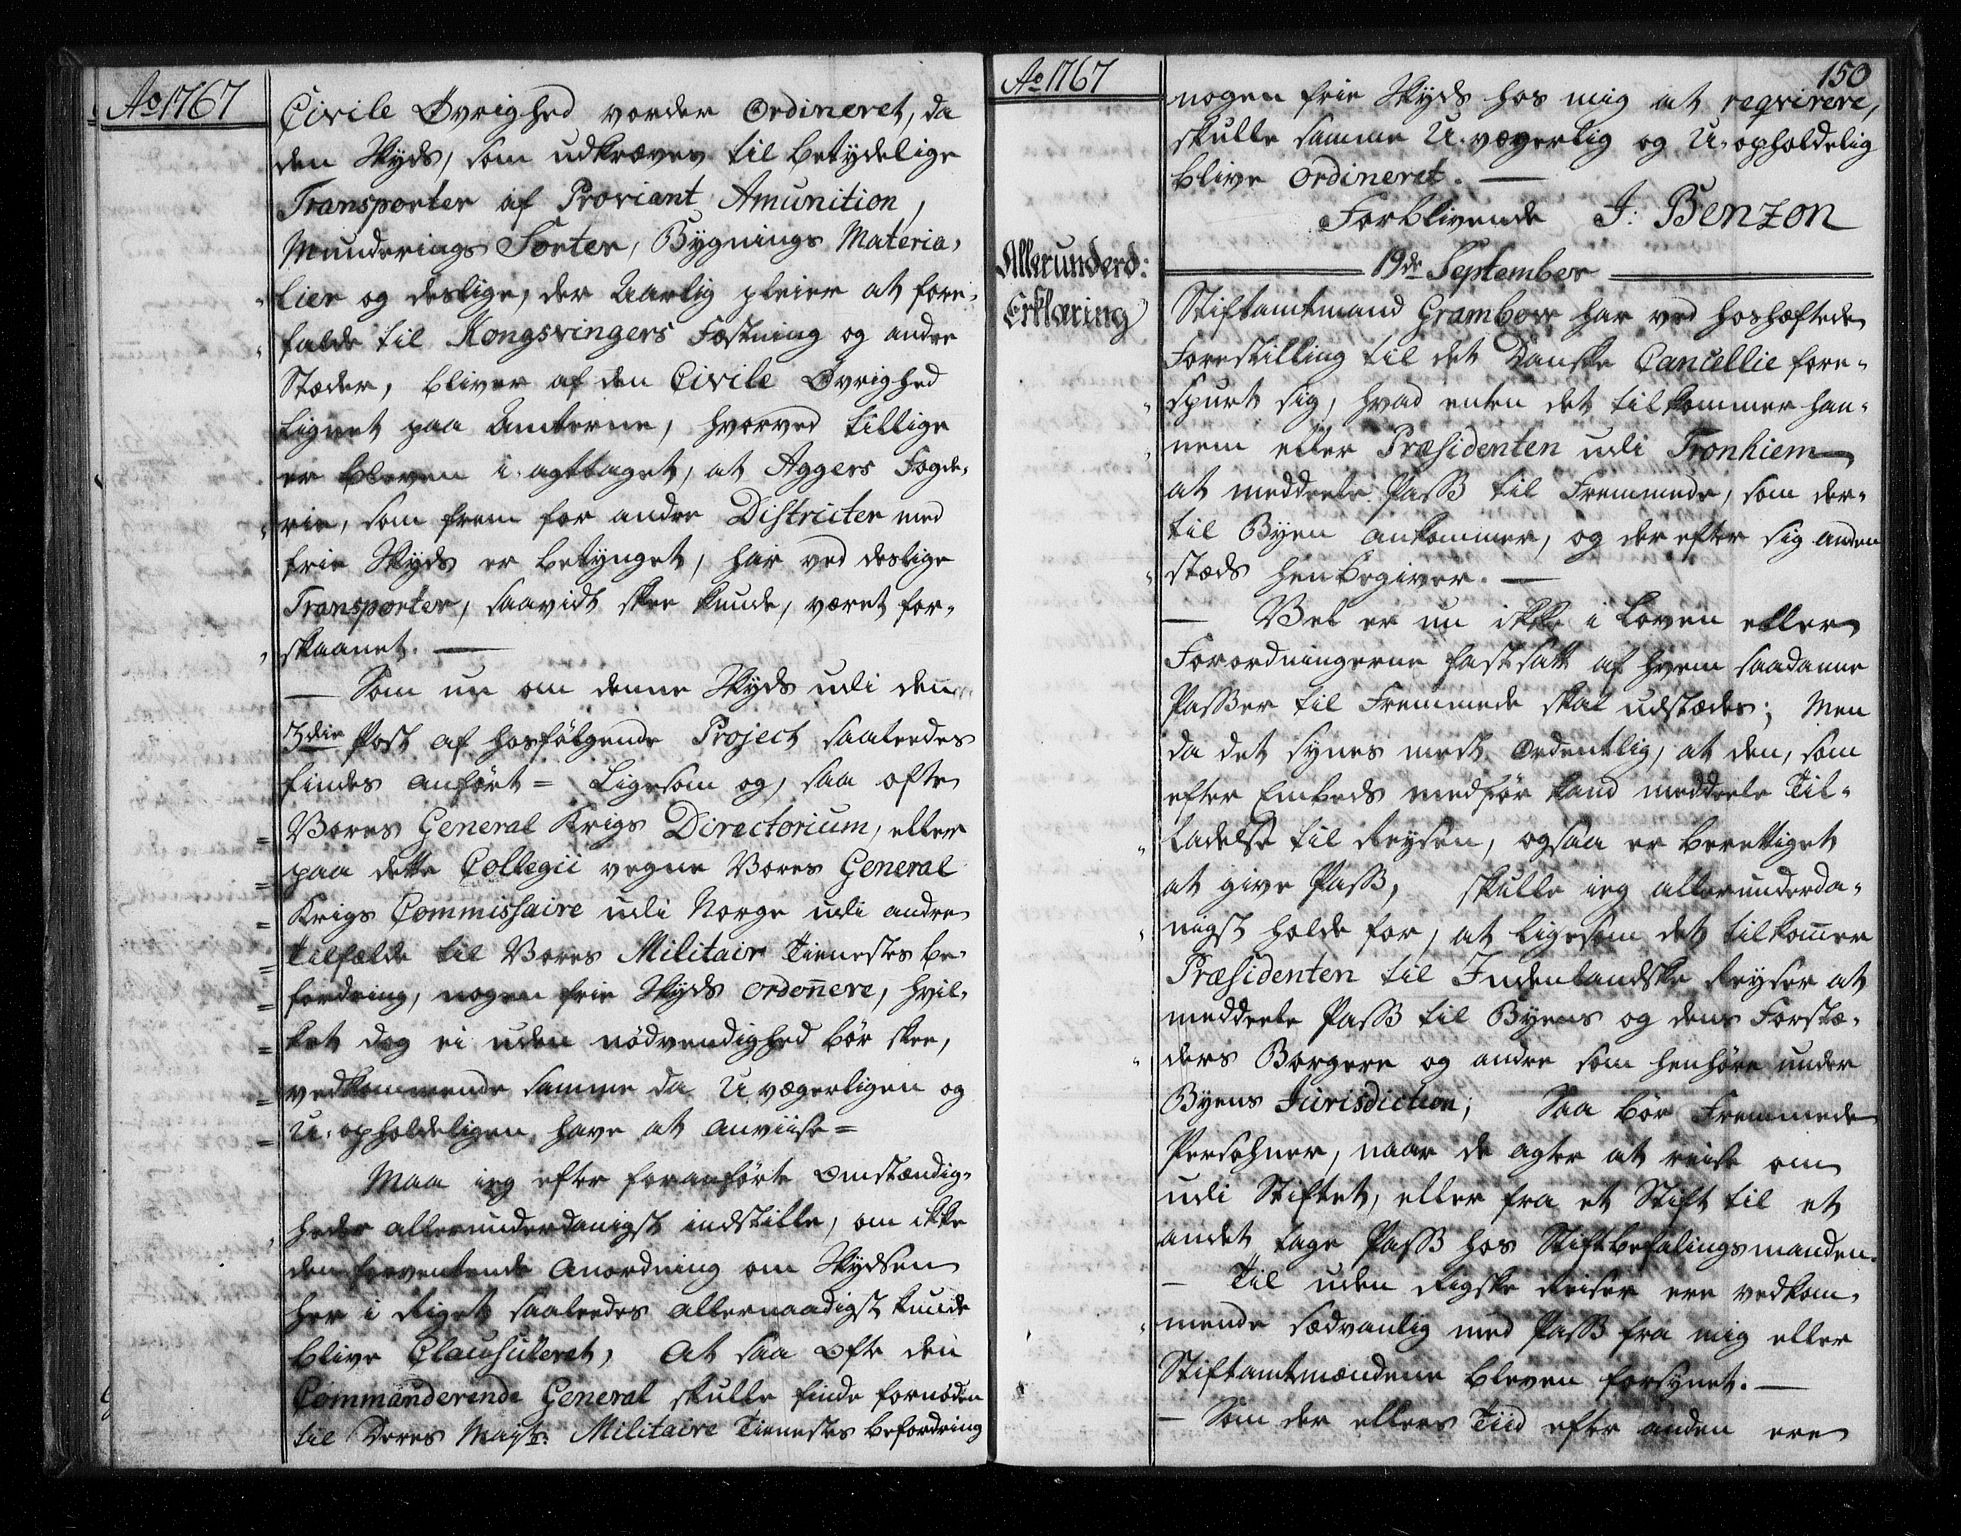 Ao 1767
Civile Øvrighed vorder ordineret, da
den Skyds, som udkræves til betydelige
Transporter af Proviant Amunition,
Munderings Sorter, Bygnings Materia-
lier og deslige, der aarlig pleier at fore-
falde til Kongsvingers Fæstning og andre
Stæder, bliver af den Civile Øvrighed
lignet paa Amterne, hvorved tillige
er bleven i agttaget, at Aggers Fogde-
rie, som frem for andre Districter med
frie Skyds er betynget, har ved deslige
Transporter, saavidt skee kunde, været for-
skaanet. —
— Som nu om denne Skyds udi den
3die Post af hosfølgende Project saaledes
findes anført = Ligesom og, saa ofte
= Vores General Krigs Directorium, eller
= paa dette Collegii vegne Vores General
= Krigs Commissaire udi Norge udi andre
= Tilfælde til Vores Militair Tienestes be-
= fordring, nogen frie Skyds ordonnere, hvil-
= ket dog ei uden nødvendighed bør skee,
= vedkommende samme da U vægerligen og
= U-opholdeligen have at anviise =
Maa ieg efter foranførte Omstændig-
heder allerunderdanigst indstille, om ikke
den forventende Anordning om Skydsen
her i Riget saaledes allernaadigst kunde
blive Clausuleret, At saa ofte den
Commanderende General skulle finde fornøden
til Deres Mayts: Militaire Tienestes befordring
Ao 1767
150
nogen frie Skyds hos mig at reqvirere,
skulle samme U-vægerlig og U-opholdelig
blive ordineret. —
Forblivende J: Benzon
19de September
Allerunderd:
Erklæring
Stiftamtmand Grambow har ved hoshæftede
Forestilling til det Danske Cancellie fore-
spurt sig, hvad enten det tilkommer han-
nem eller Præsidenten udi Tronhiem
at meddeele Pass til Fremmede, som der-
til Byen ankommer, og derefter sig anden
stæds henbegiver. —
— Vel er nu ikke i Loven eller
Forordningerne fastsatt af hvem saadanne
Passer til Fremmede skal udstædes; Men
da det synes mest ordentlig, at den, som
efter Embeds medfør kand meddeele Til-
ladelse til Reysen, ogsaa er berettiget
at give Pass, skulle ieg allerunderda-
nigst holde for, at ligesom det tilkommer
Præsidenten til Indenlandske Reyser at
meddeele Pass til Byens og dens Forstæ-
ders Borgere og andre som henhøre under
Byens Jurisdiction; Saa bør Fremmede
Persohner, naar de agter at reise om
udi Stiftet, eller fra et Stift til et
andet tage Pass hos Stiftbefalingsmanden.
— Til uden Rigske Reiser ere vedkom-
mende sædvanlig med Pass fra mig eller
Stiftamtmændene bleven forsynet. —
— Som der ellers Tiid efter anden ere